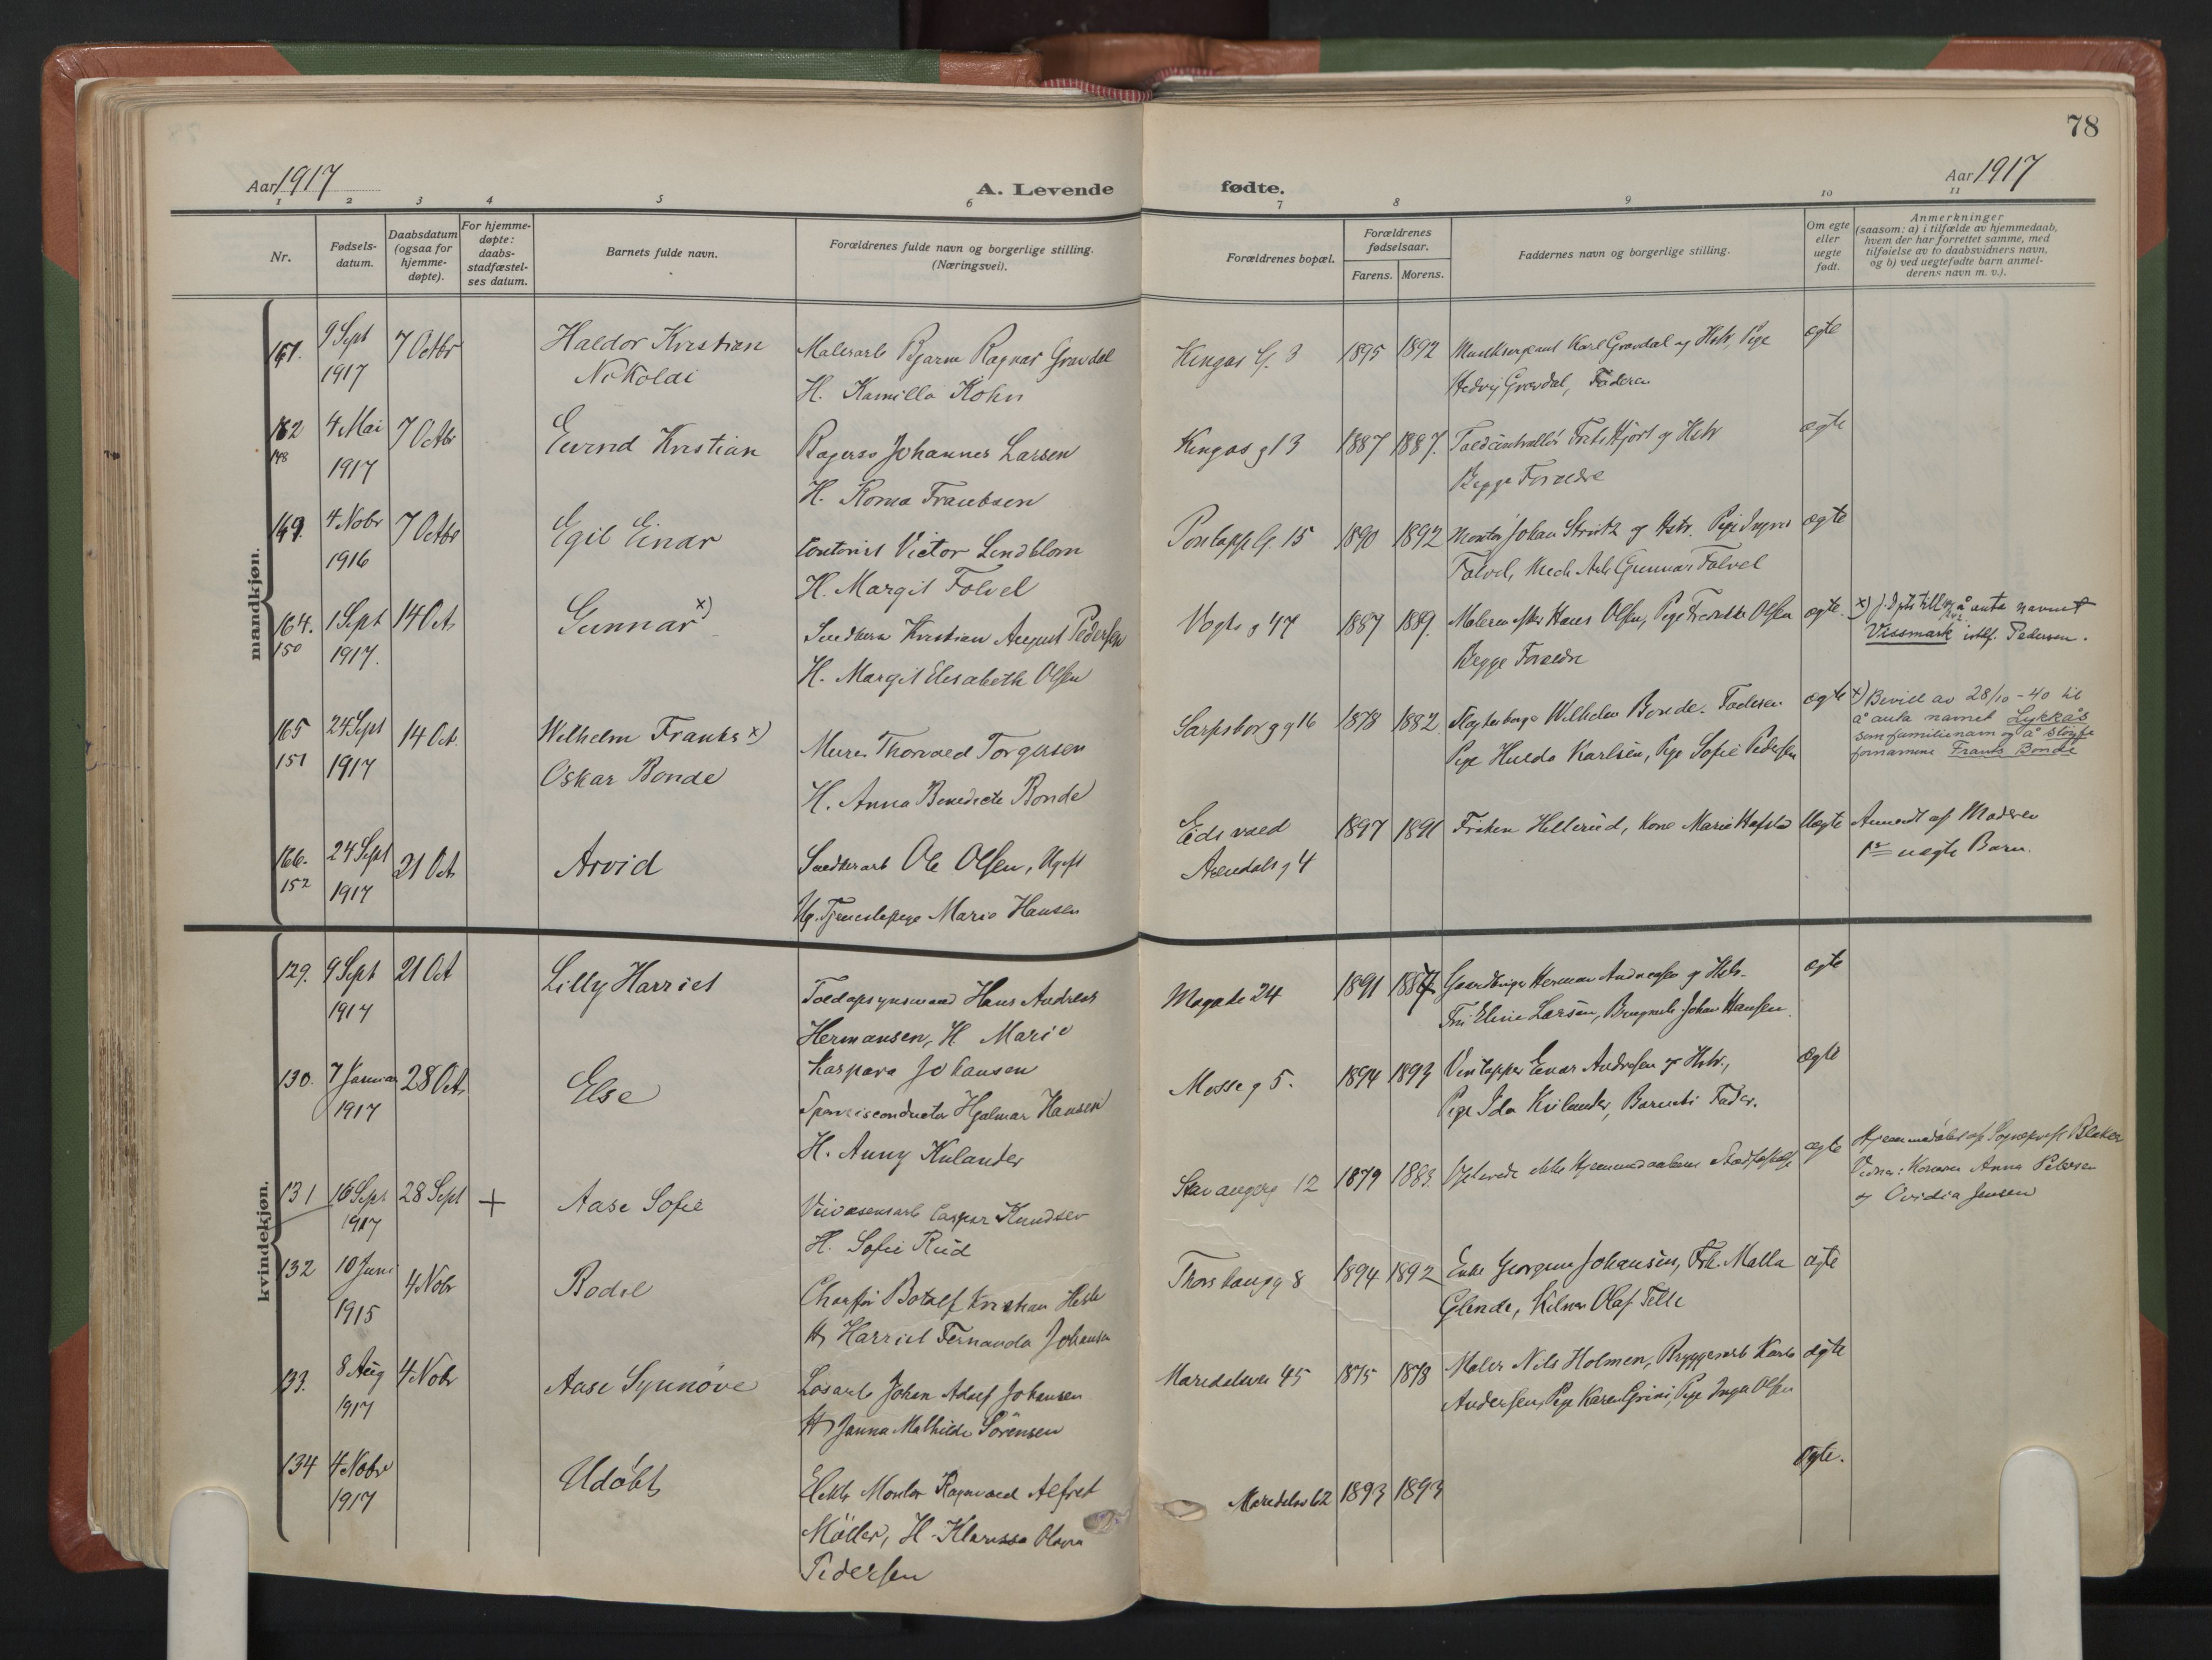 78
Aar 1917
A. Levende
fødte.
Aar 1917
1 2 3 4 5 6 7 8 9 10 11
Nr.
Fødsels-
datum.
Daabsdatum
(ogsaa for
hjemme-
døpte).
For hjemme-
døpte:
daabs-
stadfæstel-
ses datum.
Barnets fulde navn.
Forældrenes fulde navn og borgerlige stilling.
(Næringsvei).
Forældrenes bopæl.
Forældrenes
fødselsaar.
Farens. Morens.
Faddernes navn og borgerlige stilling.
Om egte
eller
uegte
født.
Anmerkninger
(saasom: a) i tilfælde av hjemmedaab,
hvem der har forrettet samme, med
tilføielse av to daabsvidners navn,
og b) ved uegtefødte barn anmel-
derens navn m. v.).
mandkjøn.
9 Sept 7 Octbr Haldor Kristian Malerarb Bjarne Ragnar Gravdal Kingos G. 3 1895 1892 Musiksergeant Karl Gravdal og Hstr, Pige ægte
1917 Nikolai H. Kamilla Kohn Hedvig Gravdal, Faderen
4 Mai 7 Octb Eivind Kristian Johannes Larsen Kingos g 13 1887 1887. Hjort og Hstr ægte
148 1917 H. Begge Forældre
4 Nobr 7 Octbr Egil Einar Kontorist Victor Lindblom G. 15 1890 1892 Montør Johan og Hstr. Pige ægte
1916 H. Margit Folvel Folvel, Mech Arb Gunnar Folvel
164. 1 Sept 14 Oct Gunnar x) Snedkersv Kristian August Pedersen Vogts g 47 1887 1889. Malermester Hans Olsen, Pige Olsen ægte. x) å anta navnet
150 1917. H. Margit Elisabeth Olsen Begge Forældre Vissmark istf. Pedersen.
165 24 Sept 14 Oct. Wilhelm Frants x) Murer Thorvald Torgersen Sarpsborg g 16 1878 1882 Wilhelm Bonde. Faderen ægte x) Bevill av 28/10-40 til
151 1917 Oskar Bonde H. Anna Benedicte Bonde Pige Hulda Karlsen, Pige Sofie Pedersen å anta navnet Lykkås
som familienavn og å sløyfe
fornavnene Frants Bonde
166. 24 Sept 21 Oct Arvid Snedkerarb Ole Olsen, Ugift Eidsvold 1897 1891 Frøken Hellerud, Kone Marie Uegte Anmeldt af Moderen
152 1917 Ug. Tjenestepige Marie Hansen Arendals g 4 1ste uegte Barn.
kvindekjøn.
129. 9 Sept 21 Oct Lilly Harriet Toldopsynsmand Hans Andreas 24 1891 Gaardbruger Herman Andreasen og Hstr. ægte
1917 Hermansen, H. Marie Fru Eline Larsen, Johan Hansen.
Kaspara Johansen
130. 7 Januar 28 Oct. Else Sporveisconductør Hjalmar Hansen Mosse g 5. 1894 1893 Vintapper Einar Andresen og Hstr., ægte
1917 H. Anny Kulander Pige Ida Kulander, Barnets Fader.
131 16 Sept 28 Sept + Aase Sofie Veivæsensarb Caspar Knudsen Stavangerg 12 1879 1883. ægte Hjemmedøbt af Sogneprest Blaker
1917 H. Sofie Rud Vidner: Konerne Anna Petersen
og Ovidia Jensen
132 10 Juni 4 Nobr Bodil Chauffør Botolf Kristian Thorshaug g 8 1894 1892 Enke Georgine Johansen, Frk. Malla ægte
1915 H. Harriet Fernanda Johansen Glende, Kelner Olaf Telle
133. 8 Aug 4 Nobr Aase Synnøve Løsarb Johan Adolf Johansen Maridalsvn 45 1875 1878 Maler Nils Holmen, Bryggerarb Karl ægte
1917 H. Janna Mathilde Sørensen Andersen, Pige Karen Grini, Pige Inga Olsen
134 4 Nobr Udøbt Elektr Montør Ragnvald Alfred Maridalsv 62 1893 1893 ægte.
1917 Møller, H. Klarissa Olava
Pedersen